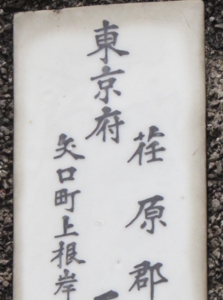 東京府
荏原郡
矢口町上根岸